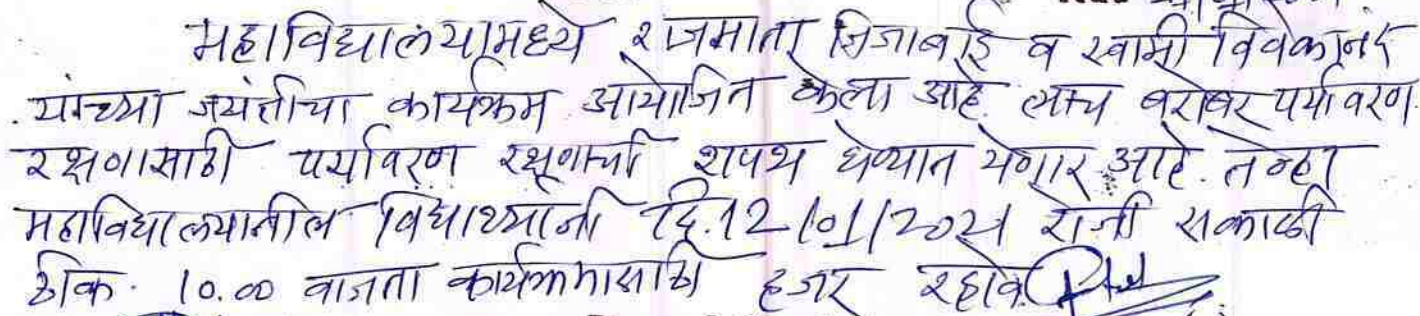 महाविद्यालयामध्ये राजमाता जिजाबाई व स्वामी विवेकानंद
यांच्या जयंतीचा कार्यक्रम आयोजित केला आहे. त्याच बरोबर पर्यावरण
रक्षणासाठी पर्यावरण रक्षणाची शपथ घेण्यात येणार आहे. तेव्हा
महाविद्यालयातील विद्यार्थ्यांनी दि. 12/01/2021 रोजी सकाळी
ठिक. 10.00 वाजता कार्यक्रमासाठी हजर रहावे.